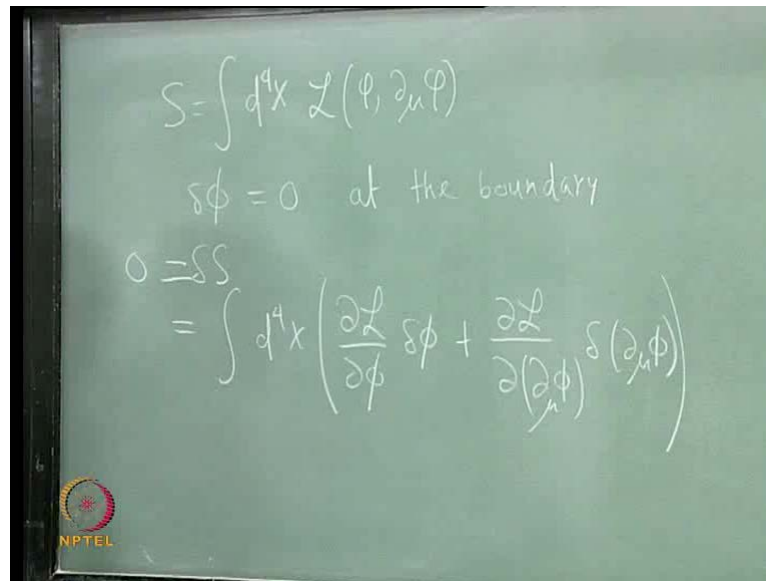 S = ∫ d⁴x ℒ(φ, ∂_μ φ)
δϕ = 0 at the boundary
0 = δS
= ∫ d⁴x ( ∂ℒ/∂ϕ δϕ + ∂ℒ/∂(∂_μ ϕ) δ(∂_μ ϕ) )
NPTEL